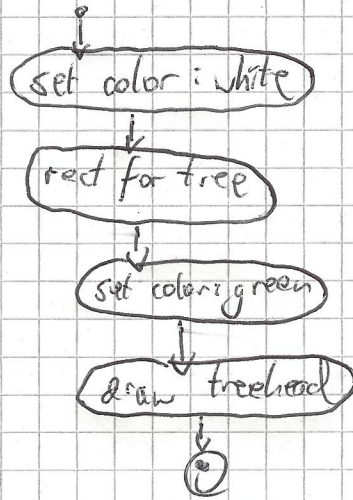 set color: white
rect for tree
set color: green
draw treehead